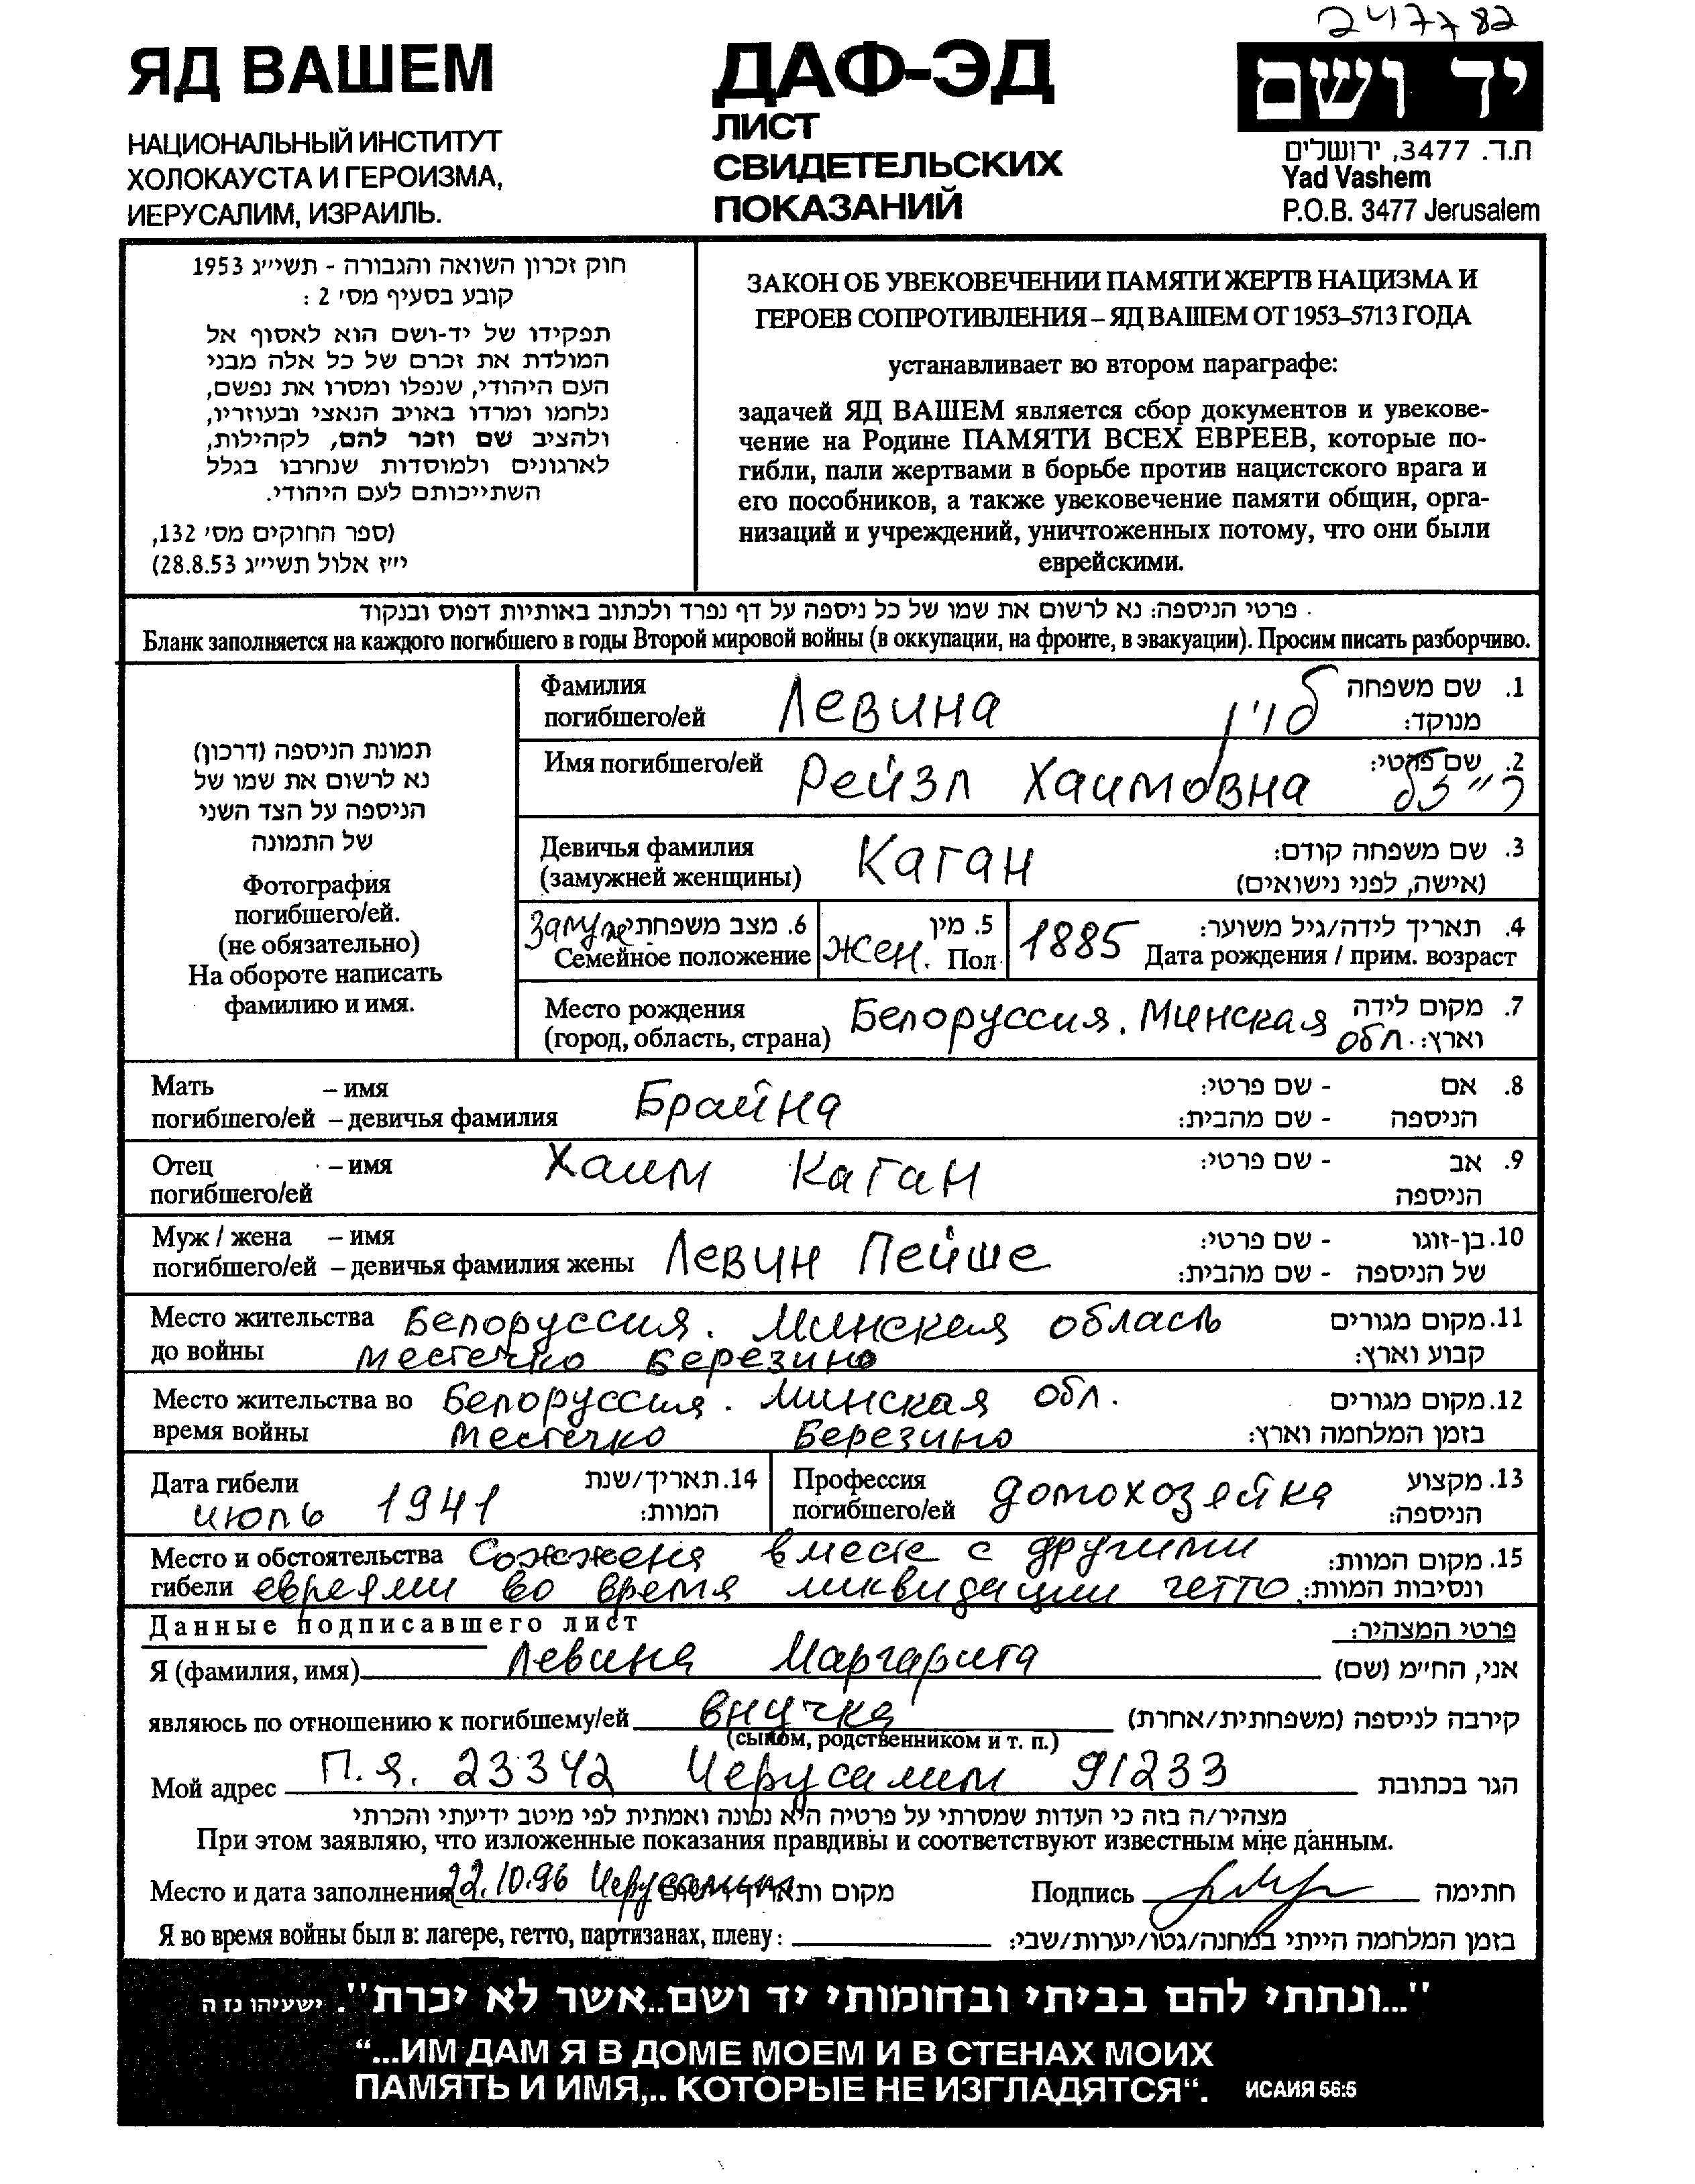 247782
ЯД ВАШЕМ
НАЦИОНАЛЬНЫЙ ИНСТИТУТ
ХОЛОКАУСТА И ГЕРОИЗМА,
ИЕРУСАЛИМ, ИЗРАИЛЬ.
ДАФ-ЭД
ЛИСТ
СВИДЕТЕЛЬСКИХ
ПОКАЗАНИЙ
יד ושם
ת.ד. 3477, ירושלים
Yad Vashem
P.O.B. 3477 Jerusalem
חוק זכרון השואה והגבורה - תשי״ג 1953
קובע בסעיף מס׳ 2 :
תפקידו של יד-ושם הוא לאסוף אל
המולדת את זכרם של כל אלה מבני
העם היהודי, שנפלו ומסרו את נפשם,
נלחמו ומרדו באויב הנאצי ובעוזריו,
ולהציב שם וזכר להם, לקהילות,
לארגונים ולמוסדות שנחרבו בגלל
השתייכותם לעם היהודי.
(ספר החוקים מס׳ 132,
י״ז אלול תשי״ג 28.8.53)
ЗАКОН ОБ УВЕКОВЕЧЕНИИ ПАМЯТИ ЖЕРТВ НАЦИЗМА И
ГЕРОЕВ СОПРОТИВЛЕНИЯ – ЯД ВАШЕМ ОТ 1953–5713 ГОДА
устанавливает во втором параграфе:
задачей ЯД ВАШЕМ является сбор документов и увекове-
чение на Родине ПАМЯТИ ВСЕХ ЕВРЕЕВ, которые по-
гибли, пали жертвами в борьбе против нацистского врага и
его пособников, а также увековечение памяти общин, орга-
низаций и учреждений, уничтоженных потому, что они были
еврейскими.
פרטי הניספה: נא לרשום את שמו של כל ניספה על דף נפרד ולכתוב באותיות דפוס ובנקוד
Бланк заполняется на каждого погибшего в годы Второй мировой войны (в оккупации, на фронте, в эвакуации). Просим писать разборчиво.
תמונת הניספה (דרכון)
נא לרשום את שמו של
הניספה על הצד השני
של התמונה
Фотография
погибшего/ей.
(не обязательно)
На обороте написать
фамилию и имя.
Фамилия
погибшего/ей Левина לוין
1. שם משפחה
מנוקד:
Имя погибшего/ей Рейзл Хаимовна רייזל
2. שם פרטי:
Девичья фамилия
(замужней женщины) Каган
3. שם משפחה קודם:
(אישה, לפני נישואים)
замуж 6. מצב משפחתי
Семейное положение
жен. 5. מין
Пол
1885 4. תאריך לידה/גיל משוער:
Дата рождения / прим. возраст
Место рождения
(город, область, страна) Белоруссия. Минская обл.
7. מקום לידה
וארץ:
Мать – имя
погибшего/ей – девичья фамилия Брайна
8. אם - שם פרטי:
הניספה - שם מהבית:
Отец – имя Хаим Каган
погибшего/ей
9. אב - שם פרטי:
הניספה
Муж / жена – имя
погибшего/ей – девичья фамилия жены Левин Пейше
10. בן-זוגו - שם פרטי:
של הניספה - שם מהבית:
Место жительства Белоруссия. Минская область
до войны местечко Березино
11. מקום מגורים
קבוע וארץ:
Место жительства во Белоруссия. Минская обл.
время войны местечко Березино
12. מקום מגורים
בזמן המלחמה וארץ:
Дата гибели
июль 1941
14. תאריך/שנת
המוות:
Профессия
погибшего/ей домохозяйка
13. מקצוע
הניספה:
Место и обстоятельства Сожжена вместе с другими
гибели евреями во время ликвидации гетто
15. מקום המוות:
ונסיבות המוות:
Данные подписавшего лист
פרטי המצהיר:
Я (фамилия, имя) Левина Маргарита אני, הח״מ (שם)
являюсь по отношению к погибшему/ей внучка קירבה לניספה (משפחתית/אחרת)
(сыном, родственником и т. п.)
Мой адрес П.я. 23342 Иерусалим 91233 הגר בכתובת
מצהיר/ה בזה כי העדות שמסרתי על פרטיה היא נכונה ואמתית לפי מיטב ידיעתי והכרתי
При этом заявляю, что изложенные показания правдивы и соответствуют известным мне данным.
Место и дата заполнения 22.10.96 Иерусалим מקום ותאריך רישום Подпись חתימה
Я во время войны был в: лагере, гетто, партизанах, плену: בזמן המלחמה הייתי במחנה/גטו/יערות/שבי:
"...ונתתי להם בביתי ובחומותי יד ושם..אשר לא יכרת". ישעיהו נו ה
“...ИМ ДАМ Я В ДОМЕ МОЕМ И В СТЕНАХ МОИХ
ПАМЯТЬ И ИМЯ,.. КОТОРЫЕ НЕ ИЗГЛАДЯТСЯ“. ИСАИЯ 56:5